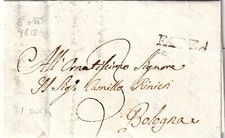 1818
FAENZA
All' Ornatissimo Signore
Il Sigr Camillo Rinieri
Bologna